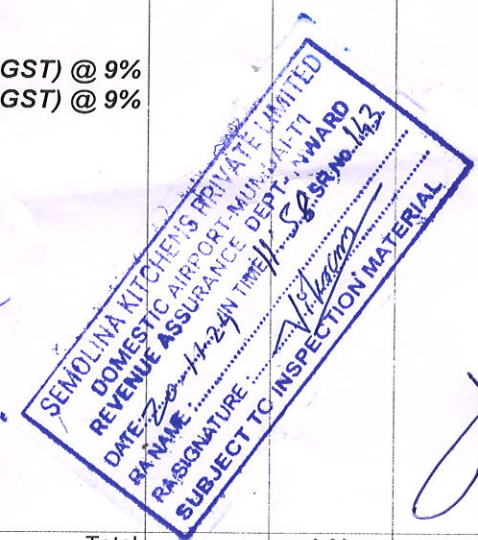 GST) @ 9%
GST) @ 9%
SEMOLINA KITCHENS PRIVATE LIMITED
DOMESTIC AIRPORT-MUMBAI-T1
REVENUE ASSURANCE DEPT-INWARD
DATE: 20-11-24 IN TIME 11.58 SR.No. 1143
RA NAME :
RA SIGNATURE : Vikram
SUBJECT TO INSPECTION MATERIAL
Total